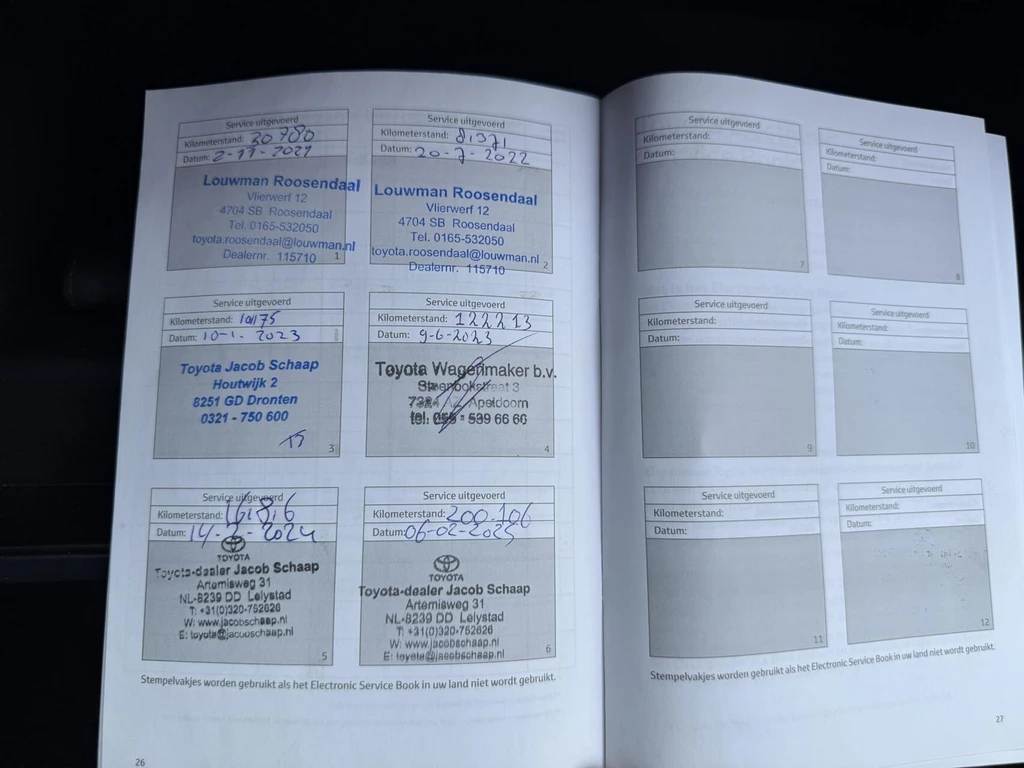 Service uitgevoerd
Kilometerstand: 30780
Datum: 2-11-2021
Louwman Roosendaal
Vlierwerf 12
4704 SB Roosendaal
Tel. 0165-532050
toyota.roosendaal@louwman.nl
Dealernr. 115710
1
Service uitgevoerd
Kilometerstand: 81371
Datum: 20-7-2022
Louwman Roosendaal
Vlierwerf 12
4704 SB Roosendaal
Tel. 0165-532050
toyota.roosendaal@louwman.nl
Dealernr. 115710
2
Service uitgevoerd
Kilometerstand: 101175
Datum: 10-1-2023
Toyota Jacob Schaap
Houtwijk 2
8251 GD Dronten
0321 - 750 600
3
Service uitgevoerd
Kilometerstand: 122213
Datum: 9-6-2023
Toyota Wagenmaker b.v.
Steenbokstraat 3
7324 AZ Apeldoorn
tel. 055 - 539 66 66
4
Service uitgevoerd
Kilometerstand:
Datum: 2024
TOYOTA
Toyota-dealer Jacob Schaap
Artemisweg 31
NL-8239 DD Lelystad
T: +31(0)320-762626
W: www.jacobschaap.nl
E: toyota@jacobschaap.nl
5
Service uitgevoerd
Kilometerstand: 200.106
Datum: 06-02-2025
TOYOTA
Toyota-dealer Jacob Schaap
Artemisweg 31
NL-8239 DD Lelystad
T: +31(0)320-762626
W: www.jacobschaap.nl
E: toyota@jacobschaap.nl
6
Stempelvakjes worden gebruikt als het Electronic Service Book in uw land niet wordt gebruikt.
26
Service uitgevoerd
Kilometerstand:
Datum:
7
Service uitgevoerd
Kilometerstand:
Datum:
8
Service uitgevoerd
Kilometerstand:
Datum:
9
Service uitgevoerd
Kilometerstand:
Datum:
10
Service uitgevoerd
Kilometerstand:
Datum:
11
Service uitgevoerd
Kilometerstand:
Datum:
12
Stempelvakjes worden gebruikt als het Electronic Service Book in uw land niet wordt gebruikt.
27